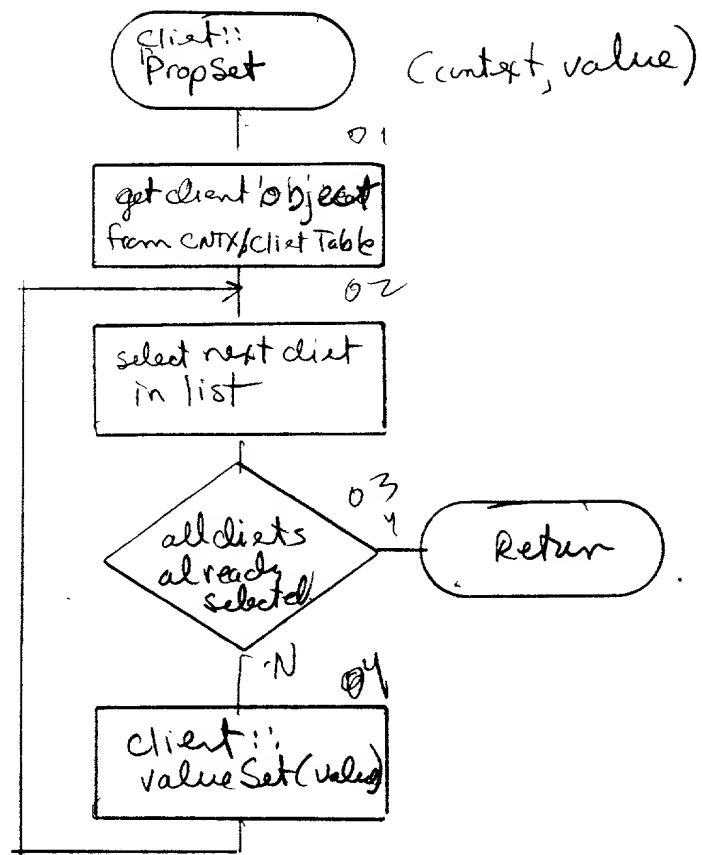 client::
PropSet
(context, value)
01
get client object
from CNTX/Client Table
02
select next client
in list
03
all clients
already
selected
Y
Return
N
04
client::
valueSet(value)